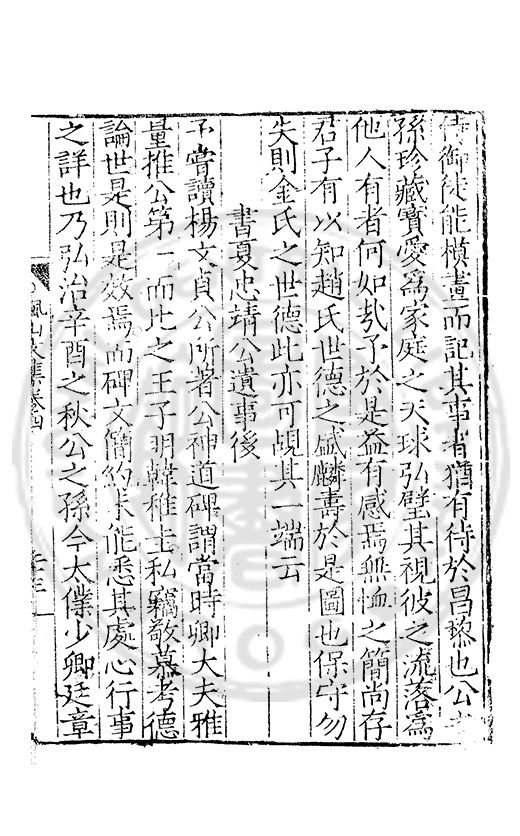 侍御徒能模畫而記其事者猶有待於昌黎也公
孫珍藏寳愛為家庭之天球弘璧其視彼之流落為
他人有者何如哉予於是益有感焉無恤之簡尚存
君子有以知趙氏世德之盛麟壽於是圖也保守勿
失則金氏之世德此亦可覘其一端云
書夏忠靖公遺事後
予嘗讀楊文貞公所著公神道碑謂當時卿大夫雅
量推公第一而比之王子明韓稚圭私竊敬慕考德
論世是則是效焉而碑文簡約未能悉其處心行事
之詳也乃弘治辛酉之秋公之孫今太僕少卿廷章
楓山文集卷四